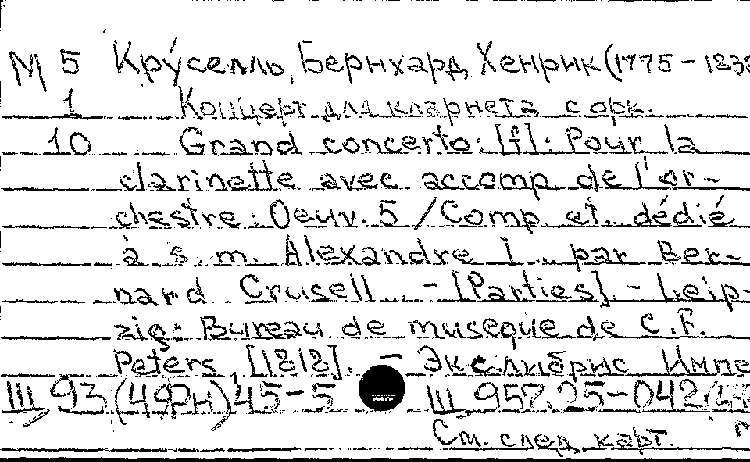 М 5 Кру́селль, Бернхард Хенрик (1775-1838
1 Концерт для кларнета с орк.
10 Grand concerto: [f]: Pour la
clarinette avec accomp de l'or-
chestre: Oeuv. 5 / Comp et. dédié
à s. m. Alexandre I... par Ber-
nard Crusell... - [Parties]. - Leip-
zig: Bureau de museque de C. F.
Peters, [1818]. - Экслибрис Импе
III 93(4Фн)45-5 III 957.25-042
См. след. карт.